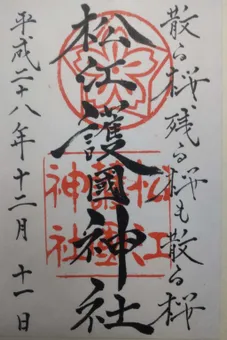 散る桜残る桜も散る桜
松江護國神社
平成二十八年十二月十一日
松江
護國
神社